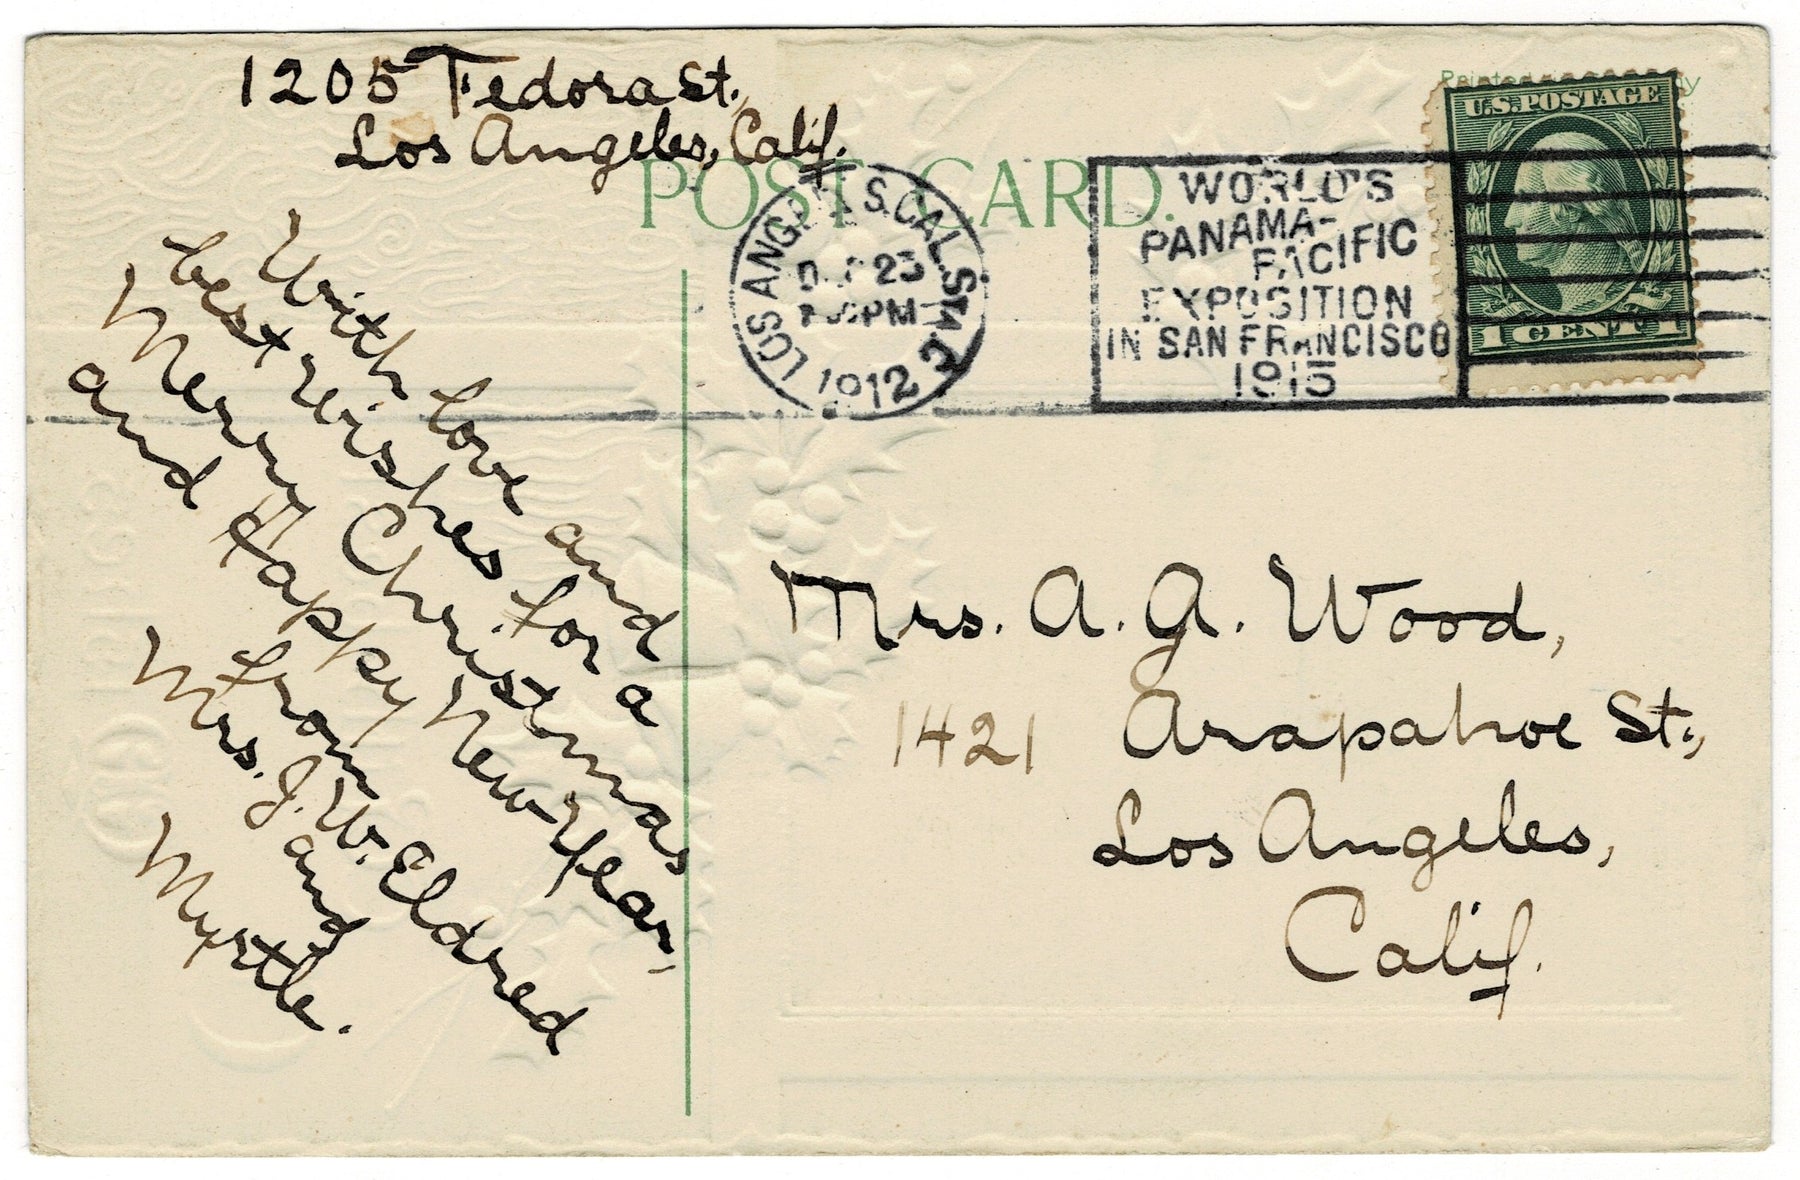 1205 Fedora St.,
Los Angeles, Calif.
POST CARD.
LOS ANGELES, CAL. STA. C.
DEC 23
PM
1912
WORLD'S
PANAMA-
PACIFIC
EXPOSITION
IN SAN FRANCISCO
1915
Printed in
U.S. POSTAGE
1 CENT 1
With love and
best wishes for a
Merry Christmas
and Happy New-Year,
from
Mrs. J. W. Eldred
and
Myrtle.
Mrs. A. G. Wood,
1421 Arapahoe St.,
Los Angeles,
Calif.